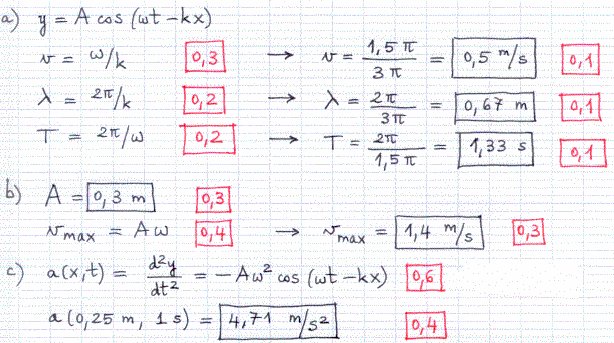 a) y = A cos (ωt - kx)
v = ω/k 0,3 → v = 1,5 π / 3 π = 0,5 m/s 0,1
λ = 2π/k 0,2 → λ = 2π / 3π = 0,67 m 0,1
T = 2π/ω 0,2 → T = 2π / 1,5 π = 1,33 s 0,1
b) A = 0,3 m 0,3
v max = A ω 0,4 → v max = 1,4 m/s 0,3
c) a(x,t) = d²y / dt² = - A ω² cos (ωt - kx) 0,6
a (0,25 m, 1 s) = 4,71 m/s² 0,4